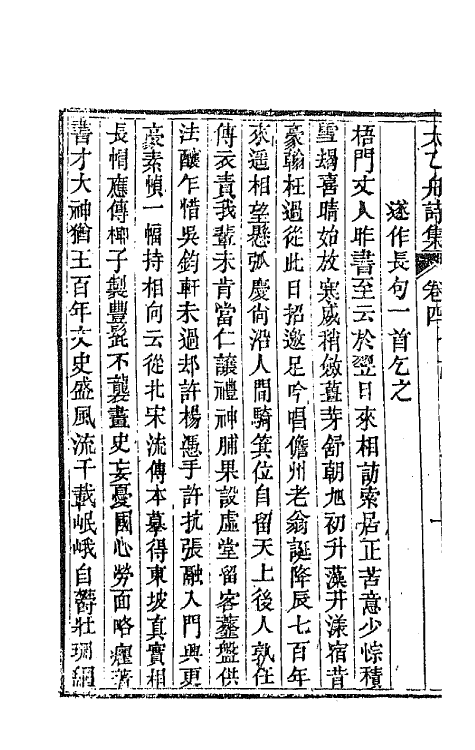 太乙舟詩集 卷四
遂作長句一首乞之
梧門丈人昨書至云於翌日來相訪索居正苦意少悰積
雪朅喜晴始放寒威稍斂蘁芽舒朝旭初升藻井漾宿昔
豪翰枉過從此日招邀足吟唱儋州老翁誕降辰七百年
來遥相望懸弧慶尙沿人間騎箕位自留天上後人孰任
傳衣責我輩未肯當仁讓禮神脯果設虛堂留客虀盤供
法釀乍惜吳鈞軒未過却許楊憑手許抗張融入門興更
豪素幀一幅持相向云從北宋流傳本摹得東坡真實相
長帽應傳椰子製豐髭不襲畫史妄憂國心勞面略癯著
書才大神猶王百年文史盛風流千載岷峨自鬱壯瑂網